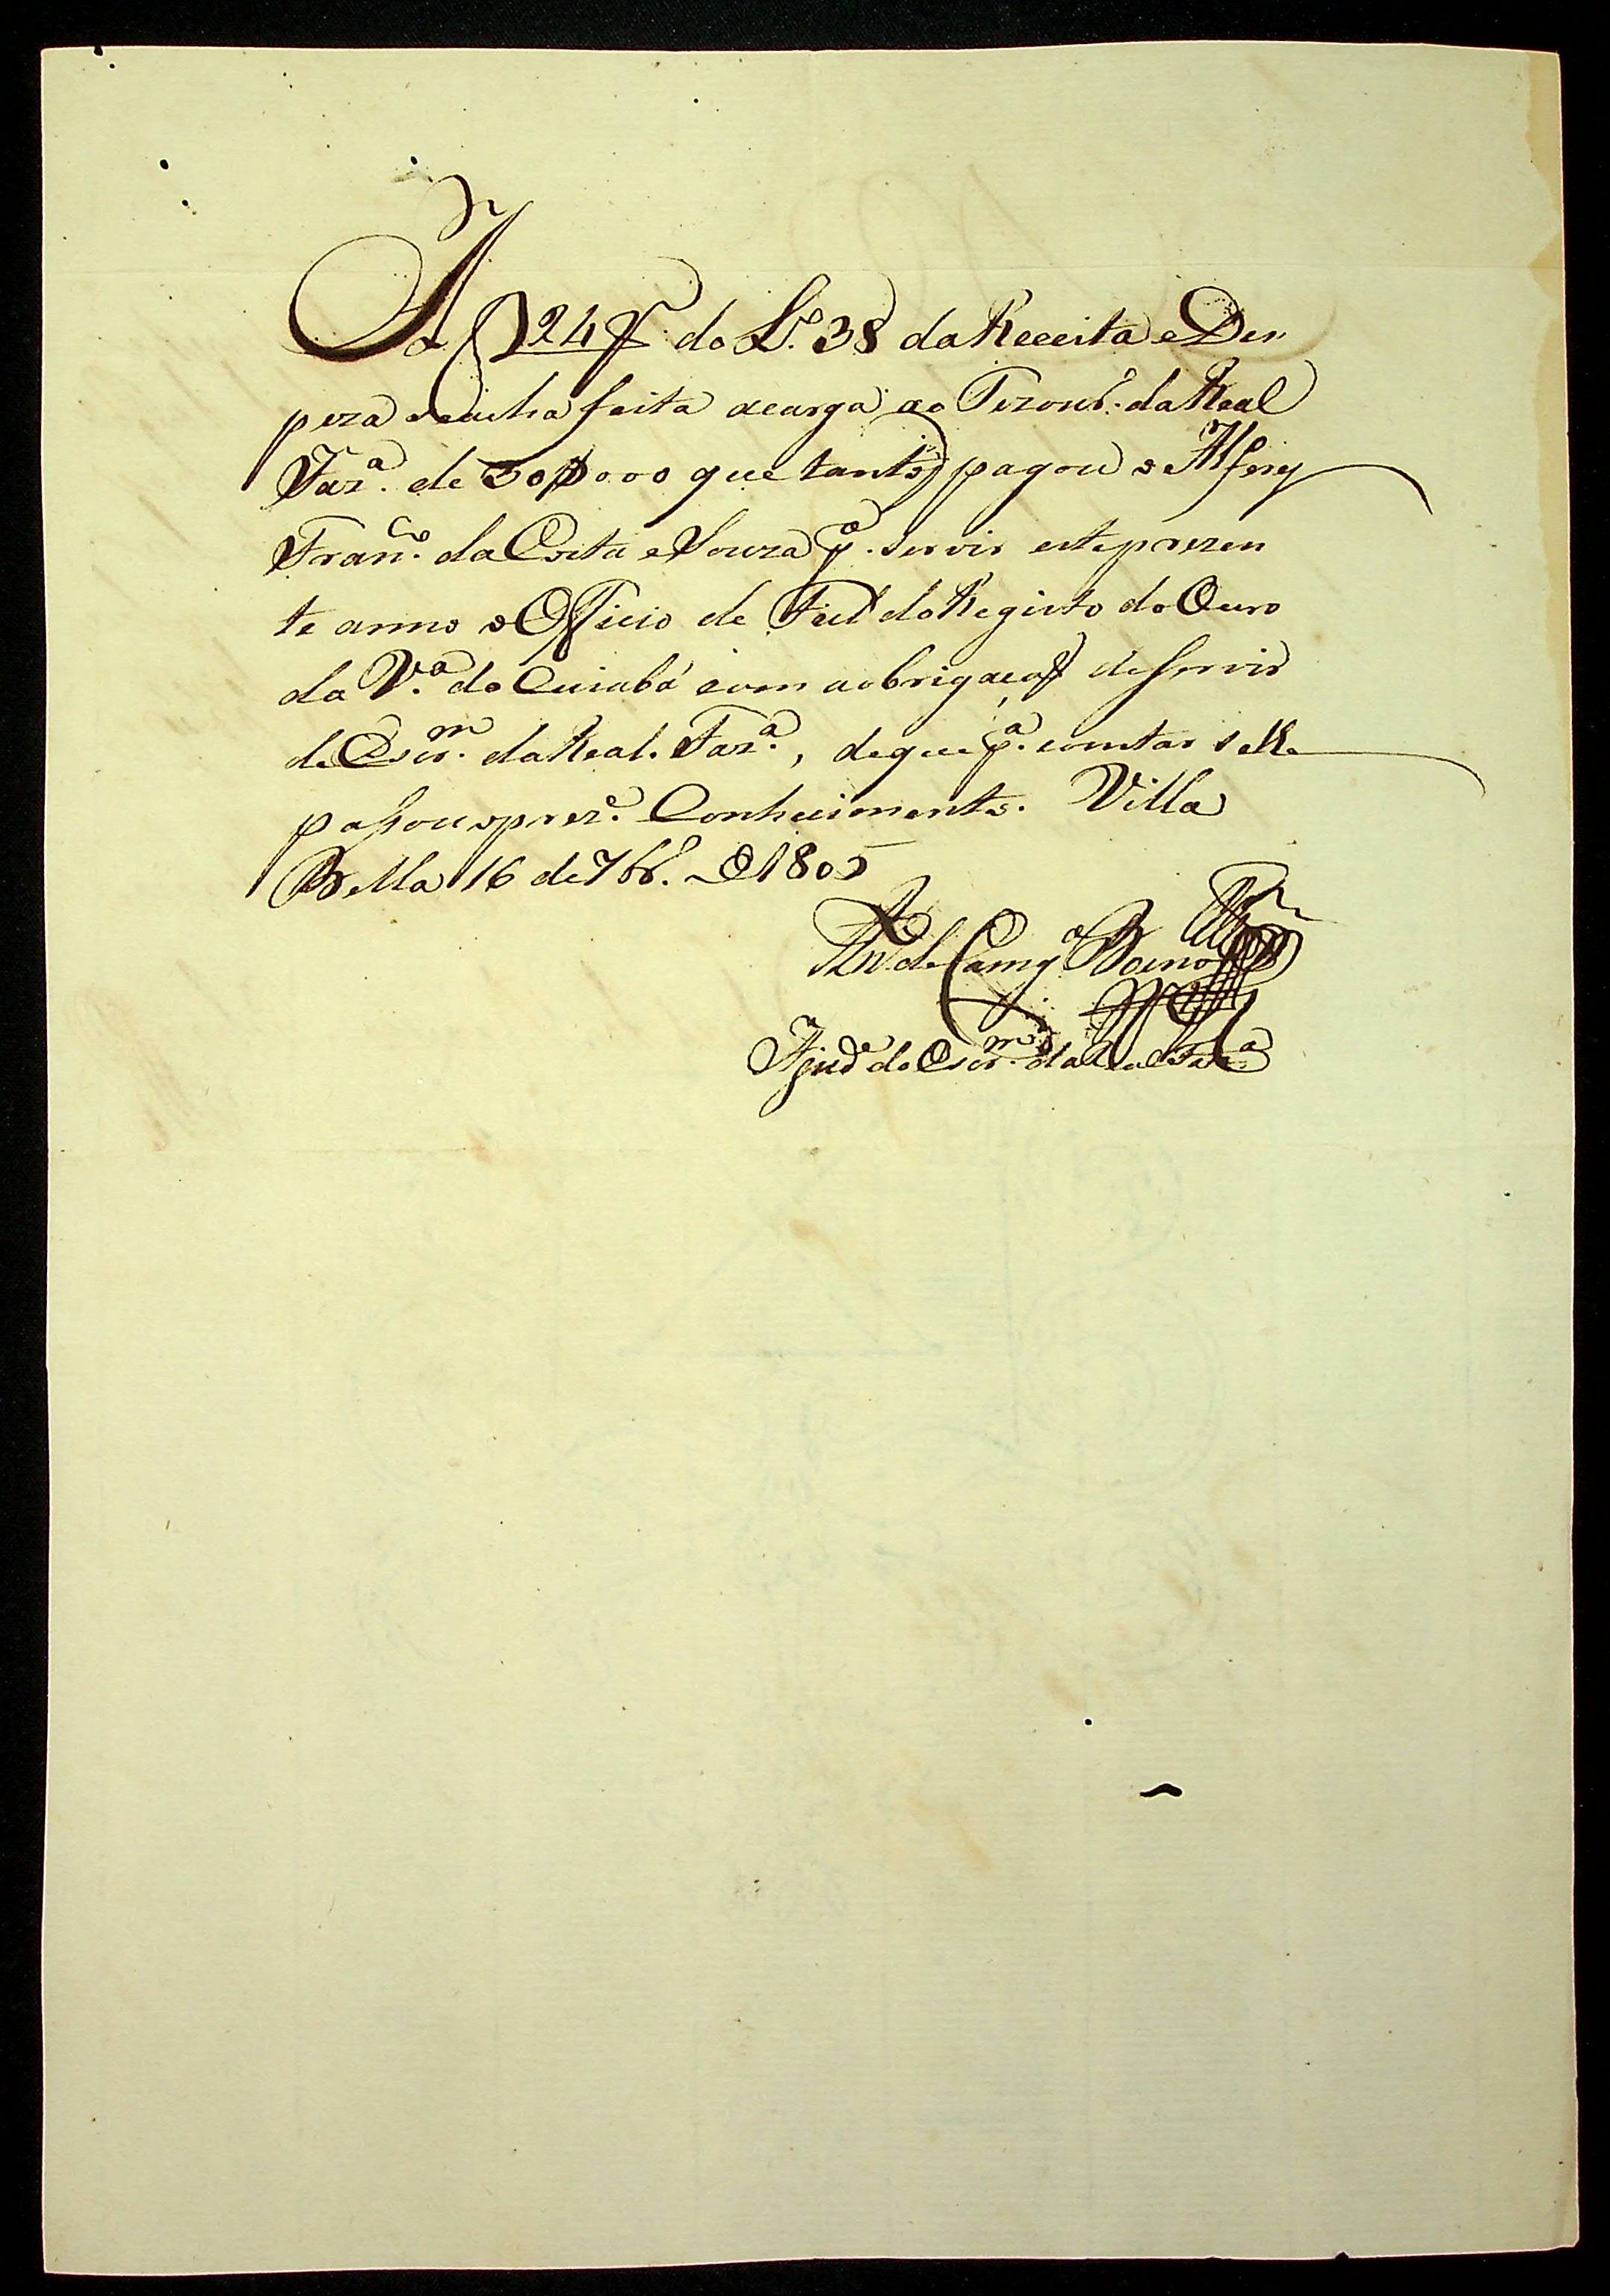 A f 24 V. do L.º 38 da Receita e Des
peza se acha feita a carga ao Tezour.º da Real
Faz.ª de 30$000 que tantos pagou o Alferes
Fran.co da Costa e Souza p.ª servir este prezen
te anno o Officio de Fiel do Registo do Ouro
da V.ª do Cuiabá com a obrigação de servir
de Escr.m da Real Faz.ª, de que p.ª constar se lhe
passou o prez.e Conhecimento. Villa
Bella 16 de 7br.º de 1805
An.to de Camg.º Boeno
Ajud.e do Escr.m da Real Faz.ª